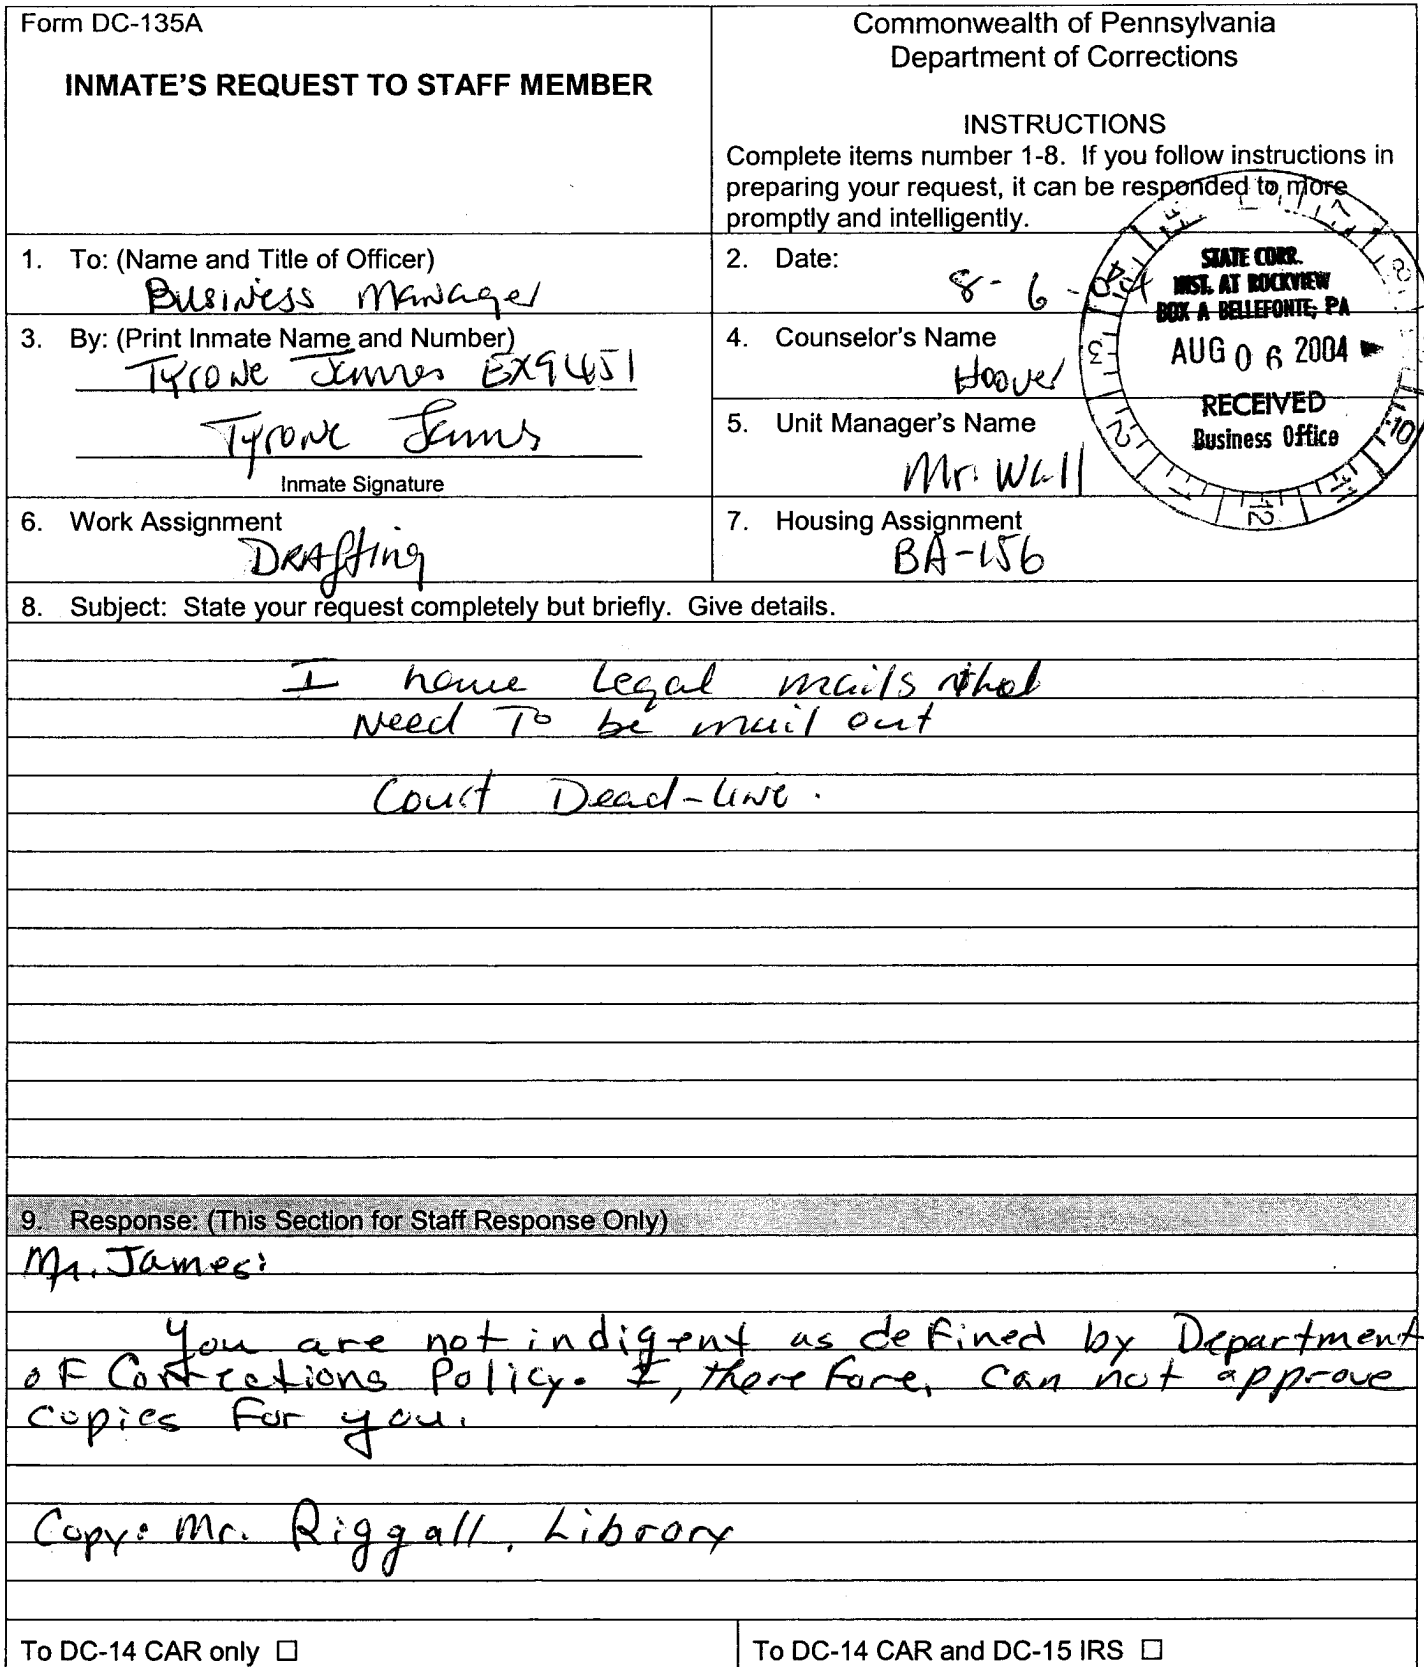 Form DC-135A
INMATE'S REQUEST TO STAFF MEMBER
Commonwealth of Pennsylvania
Department of Corrections
INSTRUCTIONS
Complete items number 1-8. If you follow instructions in
preparing your request, it can be responded to more
promptly and intelligently.
1. To: (Name and Title of Officer)
Business Manager
2. Date:
8-6-04
STATE CORR.
INST. AT ROCKVIEW
BOX A BELLEFONTE, PA
AUG 06 2004
RECEIVED
Business Office
3. By: (Print Inmate Name and Number)
Tyrone James EX9451
Tyrone James
Inmate Signature
4. Counselor's Name
Hoover
5. Unit Manager's Name
Mr. Wall
6. Work Assignment
DRAfting
7. Housing Assignment
BA-156
8. Subject: State your request completely but briefly. Give details.
I have Legal mails that
Need To be mail out
Court Dead-line.
9. Response: (This Section for Staff Response Only)
Mr. James:
You are not indigent as defined by Department
of Corrections Policy. I, therefore, can not approve
copies for you.
Copy: Mr. Riggall, Library
To DC-14 CAR only ☐
To DC-14 CAR and DC-15 IRS ☐